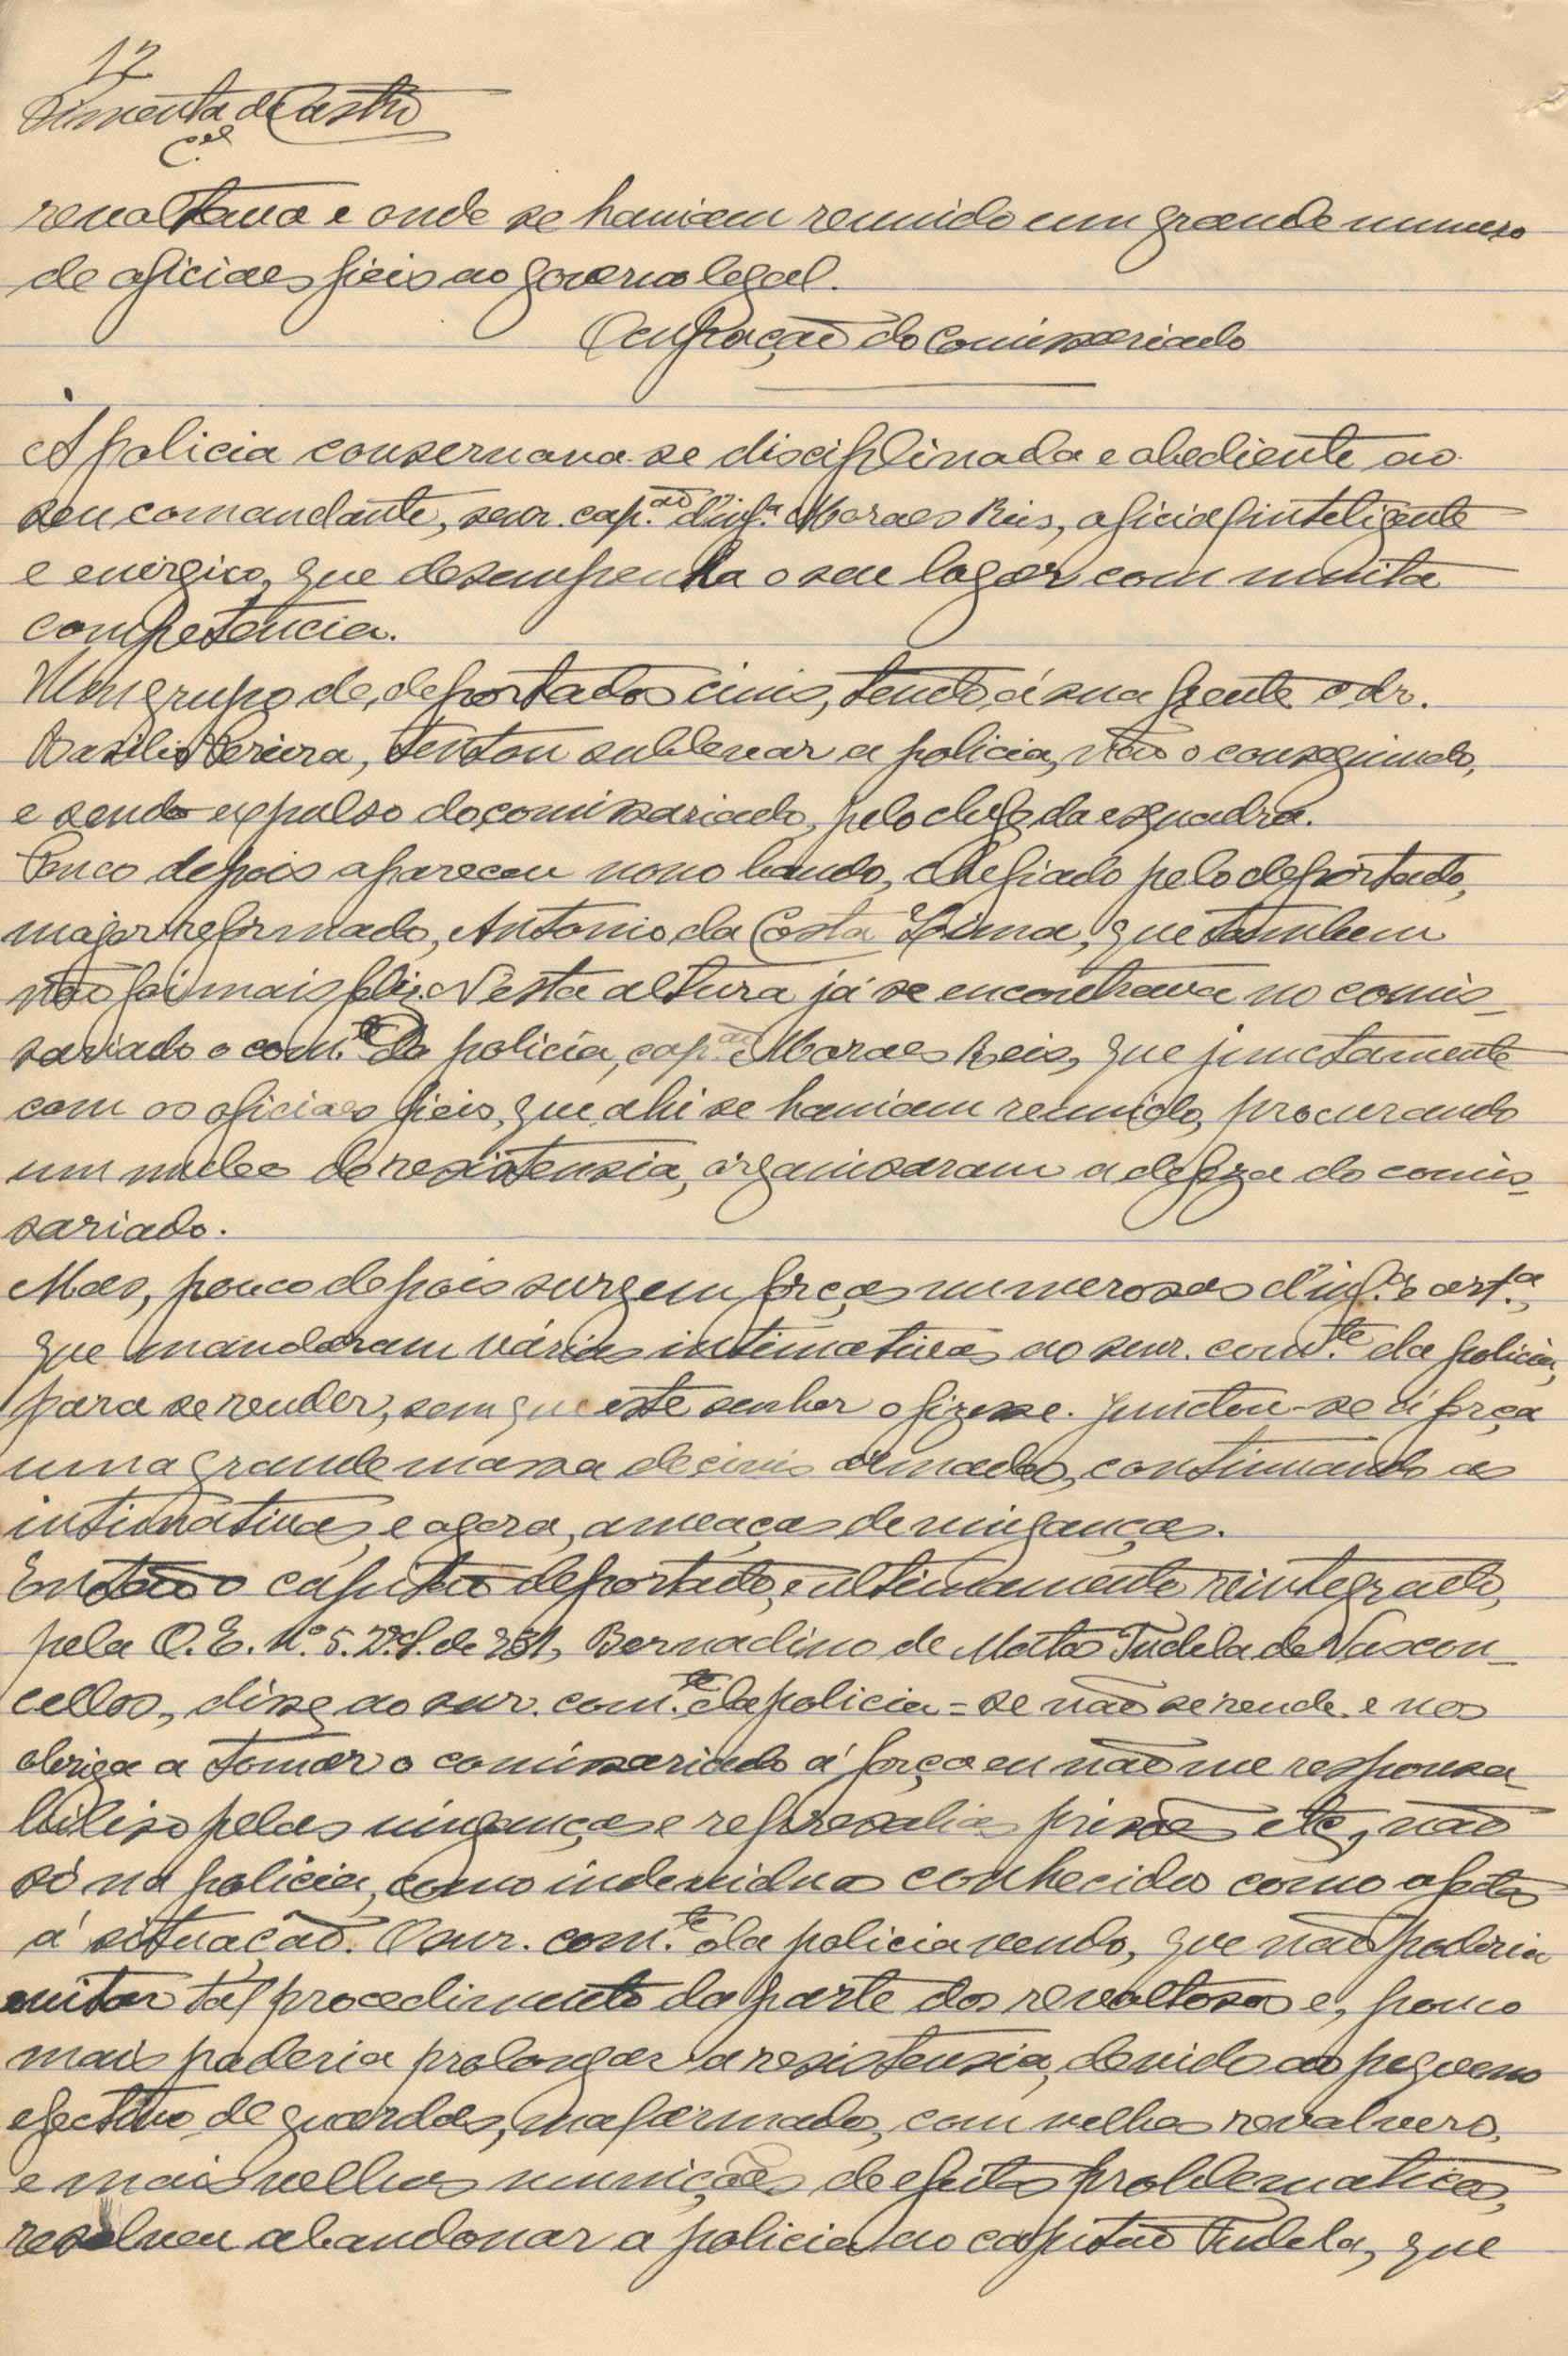 12
Pimenta de Castro
C.el
revoltava e onde se haviam reunido um grande numero
de oficiaes fieis ao governo legal.
Ocupação do Comissariado
A policia conservava-se disciplinada e obediente ao
seu comandante, senr. cap.ão d'inf.a Moraes Reis, oficial inteligente
e energico, que desempenha o seu logar com muita
competencia.
Um grupo de, deportados civis, tendo á sua frente o dr.
Basilio Pereira, tentou sublevar a policia, não o conseguindo,
e sendo expulso do comissariado, pelo chefe da esquadra.
Pouco depois apareceu novo bando, chefiado pelo deportado,
major reformado, Antonio da Costa Lima, que tambem
não foi mais feliz. Nesta altura já se encontrava no comis-
sariado o com.te da policia, cap.ão Moraes Reis, que junctamente
com os oficiaes fieis, que ahi se haviam reunido, procurando
um nucleo de resistensia, organisaram a defeza do comis-
sariado.
Mas, pouco depois surgem forças numerosas d'inf.a e art.a,
que mandaram várias intimativas ao senr. com.te da policia,
para se render, sem que este senhor o fizesse. Junctou-se á força
uma grande massa de civis armados, continuando as
intimativas, e agora, ameaças de vinganças.
Então o capitão deportado, e ultimamente reintegrado,
pela O.E. N.º 5. 2.ª S. de 931, Bernadino de Mata Tudela de Vascon-
cellos, disse ao snr. com.te da policia = se não se rende e nos
obriga a tomar o comissariado á força eu não me responsa-
biliso pelas vinganças e represalias prisões etc, não
só na policia, como individuos conhecidos como afectos
á situação. O snr. com.te da policia vendo, que não poderia
evitar tal procedimento da parte dos revoltosos e, pouco
mais poderia prolongar a resistensia, devido ao pequeno
efectivo de guardas, mal armados, com velhos revolvers,
e mais velhas munições de efeitos problematicos,
resolveu abandonar a policia ao capitão Tudela, que